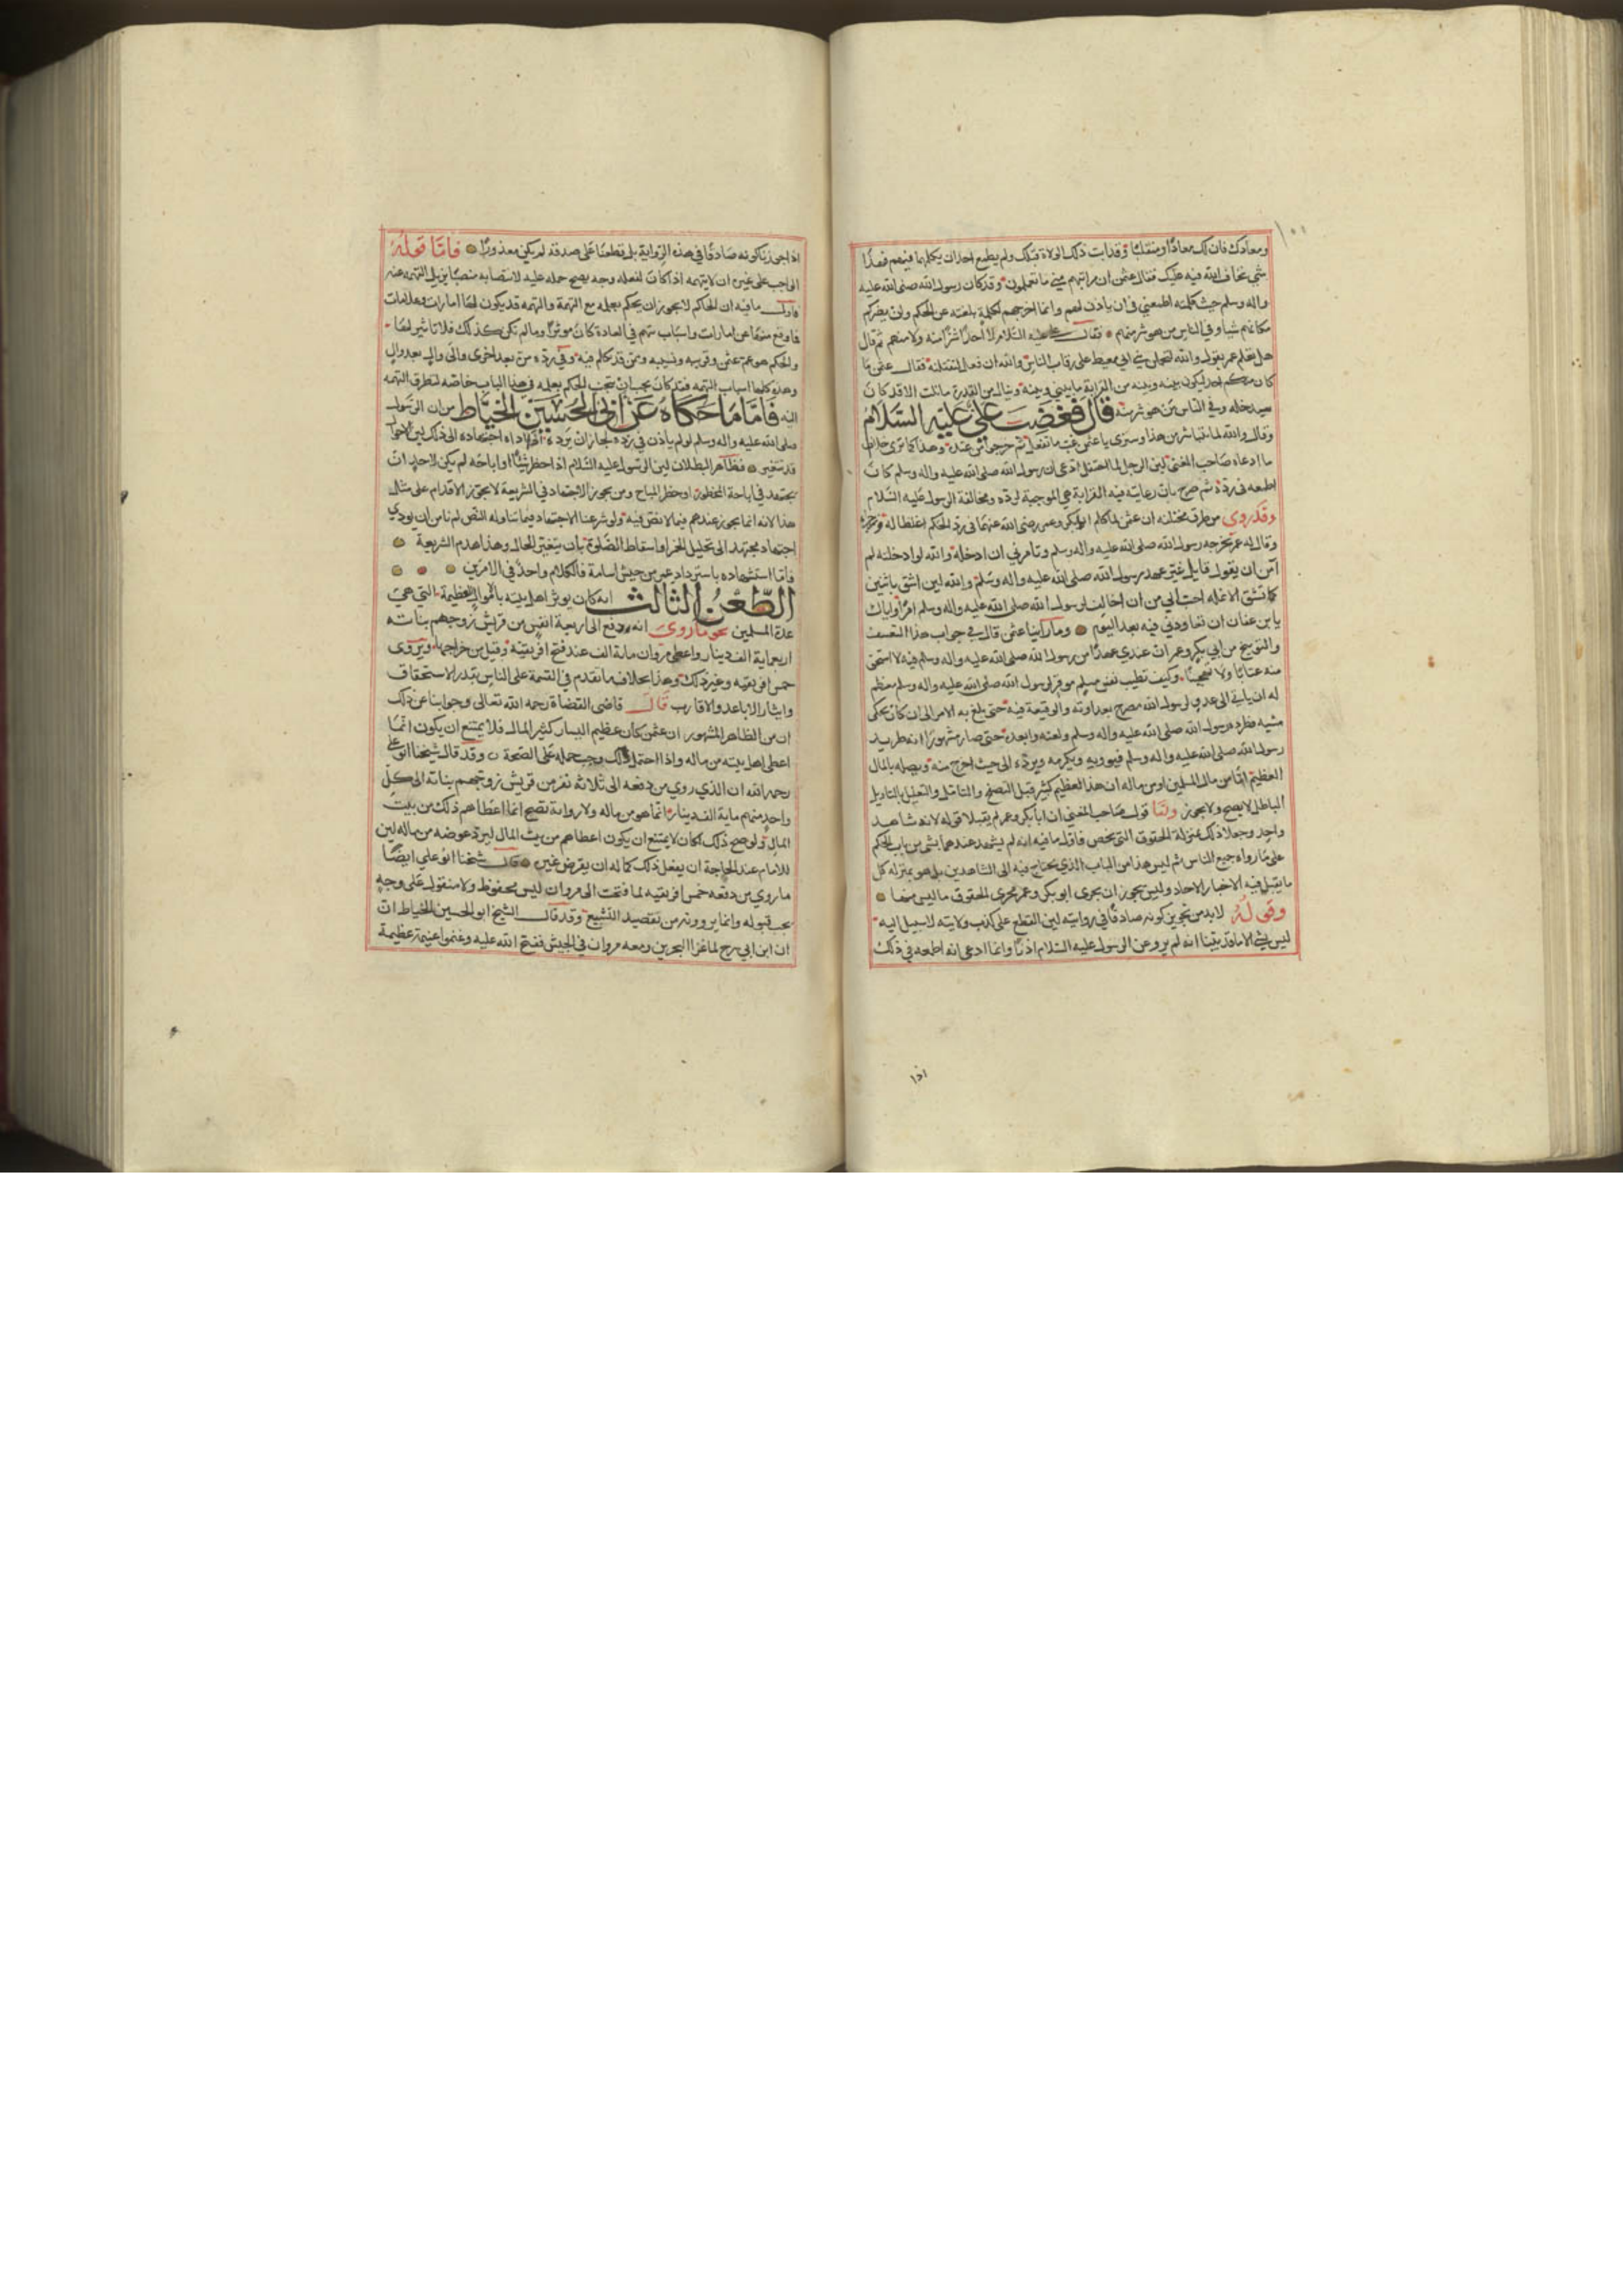 ١٠٠
ومعادك فان لك معادًا ومنقلبًا وقد ابت ذلك الولاة قبلك ولم يطمع احد ان يكلمها فيهم فهذا
شي نخاف الله فيه عليك فقال عثمن ان قرابتهم مني ما تعلمون وقد كان رسول الله صلى الله عليه
واله وسلم حيث كلمته اطمعني في ان ياذن لهم وانما اخرجهم لكلمة بلغته عن الحكم ولن يضركم
مكانهم شيا وفي الناس من هو شر منهم فقال علي عليه السلام لا احدًا شرًا منه ولا منهم ثم قال
هل تعلم عمر يقول والله لتحملن بني ابي معيط على رقاب الناس والله ان فعل لتقتلنه فقال عثمن ما
كان منكم احد ليكون بينه وبينه من القرابة ما بيني وبينه وينال من القدرة ما نلت الا قد كان
سيدخله وفي الناس من هو شر منه قال فغضب علي عليه السلام
وقال والله لتاتينا بشر من هذا وسترى يا عثمن غب ما تفعل ثم خرجوا من عنده وهذا كما ترى خلاف
ما ادعاه صاحب المغني لان الرجل لما احتفل ادعى ان رسول الله صلى الله عليه واله وسلم كان
اطمعه في رده ثم صرح بان رعايته فيه القرابة هي الموجبة لرده ومخالفة الرسول عليه السلام
وقد روي من طرق مختلفة ان عثمن لما كلم ابا بكر وعمر رضي الله عنهما في رد الحكم اغلظا له وزبراه
وقال له عمر يخرجه رسول الله صلى الله عليه واله وسلم وتامرني ان ادخله والله لو ادخلته لم
آمن ان يقول قايل غيّر عهد رسول الله صلى الله عليه واله وسلم والله لين اشق باثنين
كما تشق الابلمه احب الي من ان اخالف لرسول الله صلى الله عليه واله وسلم امرًا واياك
يا بن عفان ان تعاودني فيه بعد اليوم وما راينا عثمن قال في جواب هذا التعسف
والتوبيخ من ابي بكر وعمر ان عندي عهدًا من رسول الله صلى الله عليه واله وسلم فيه لا استحق
منه عتابًا ولا تهجينًا وكيف تطيب نفس مسلم موقر لرسول الله صلى الله عليه واله وسلم معظم
له ان ياتي الى عدو لرسول الله مصرح بعداوته والوقيعة فيه حتى بلغ به الامر الى ان كان يحكي
مشيه فطرده رسول الله صلى الله عليه واله وسلم ولعنه وابعده حتى صار مشهورًا انه طريد
رسول الله صلى الله عليه واله وسلم فيوويه ويكرمه ويرده الى حيث اخرج منه ويصله بالمال
العظيم اما من مال المسلمين او من ماله ان هذا العظيم كبير قبل التصفح والتامل والتعليل بالتاويل
الباطل لا يصح ولا يجوز ولنا قول صاحب المغني ان ابا بكر وعمر لم يقبلا قوله لانه شاهد
واحد وجعلا ذلك بمنزلة الحقوق التي تخص فاول ما فيه انه لم يشهد عندهما بشي من باب الحكم
على ما رواه جميع الناس ثم ليس هذا من الباب الذي يحتاج فيه الى الشاهدين بل هو بمنزله كل
ما يقبل فيه الاخبار الاحاد وليس يجوز ان يجري ابو بكر وعمر مجرى الحقوق ما ليس منها
وقوله لا بد من تجويز كونه صادقًا في روايته لين القطع على كذب ولايته لا سبيل اليه
ليس بشي لانا قد بينا انه لم يرو عن الرسول عليه السلام اذنًا وانما ادعى انه اطمعه في ذلك
اذا
اذا جوزنا كونه صادقًا في هذه الرواية بل قطعنا على صدقه لم يكن معذورًا فامّا قوله
الواجب على غيره ان لا يتهمه اذا كان لفعله وجه يصح حمله عليه لانتصابه منصبًا يزيل التهمه عنه
فاول ما فيه ان الحاكم لا يجوز ان يحكم بعلمه مع التهمة والتهمه قد يكون لها امارات وعلامات
فما وقع منها عن امارات واسباب تتهم في العادة كان موثرًا وما لم تكن كذلك فلا تاثير لها
والحكم هو عم عثمن وقريبه ونسيبه وممن قد تكلم فيه وفي رده مرة بعد اخرى والي والٍ بعد والٍ
وهذه كلها اسباب التهمه فقد كان يجب ان يتجنب الحكم بعلمه في هذا الباب خاصه لتطرق التهمه
اليه فامّا ما حكاه عن ابي الحسين الخياط من ان الرسول
صلى الله عليه واله وسلم لو لم ياذن في رده لجاز ان يرده اذا اداه اجتهاده الى ذلك لين الاحوال
قد تتغير فظاهر البطلان لين الرسول عليه السلام اذا حظر شيئًا او اباحه لم يكن لاحد ان
يجتهد في اباحة المحظور او حظر المباح ومن يجوز الاجتهاد في الشريعة لا يجوز الاقدام على مثل
هذا لانه انما يجوز عندهم فيما لا نص فيه ولو شرعنا الاجتهاد فيما تناوله النص لم نامن ان يودي
اجتهاد مجتهد الى تحليل الخمر واسقاط الصلوة بان يتغير الحال وهذا هدم الشريعة
فاما استشهاده باسترداد عمر من جيش اسامة فالكلام واحد في الامرين
الطعن الثالث انه كان يوثر اهل بيته بالاموال العظيمة التي هي
عدة المسلمين نحو ما روي انه دفع الى اربعة انفس من قريش زوجهم بناته
اربعماية الف دينار واعطى مروان ماية الف عند فتح افريقية وقيل من خراجها ويروى
خمس افريقيه وغير ذلك وهذا بخلاف ما تقدم في القسمة على الناس بقدر الاستحقاق
وايثار الاباعد والاقارب قال قاضي القضاة رحمه الله تعالى وجوابنا عن ذلك
ان من الظاهر المشهور ان عثمن كان عظيم اليسار كثير المال فلا يمتنع ان يكون انما
اعطى اهل بيته من ماله واذا احتمل ذلك وجب حمله على الصحة وقد قال شيخنا ابو علي
رحمه الله ان الذي روي من دفعه الى ثلاثة نفر من قريش زوجهم بناته الى كل
واحد منهم ماية الف دينار انما هو من ماله ولا رواية تصح انما اعطاهم ذلك من بيت
المال ولو صح ذلك لكان لا يمتنع ان يكون اعطاهم من بيت المال ليرد عوضه من ماله لين
للامام عند الحاجة ان يفعل ذلك كما له ان يقرض غيره وقال شيخنا ابو علي ايضًا
ما روي من دفعه خمس افريقيه لما فتحت الى مروان ليس بمحفوظ ولا منقول على وجه
يجب قبوله وانما يروونه من تقصيد التشييع وقد قال الشيخ ابو الحسين الخياط ان
ان ابن ابي سرح لما غزا البحرين ومعه مروان في الجيش ففتح الله عليه وغنموا غنيمة عظيمة